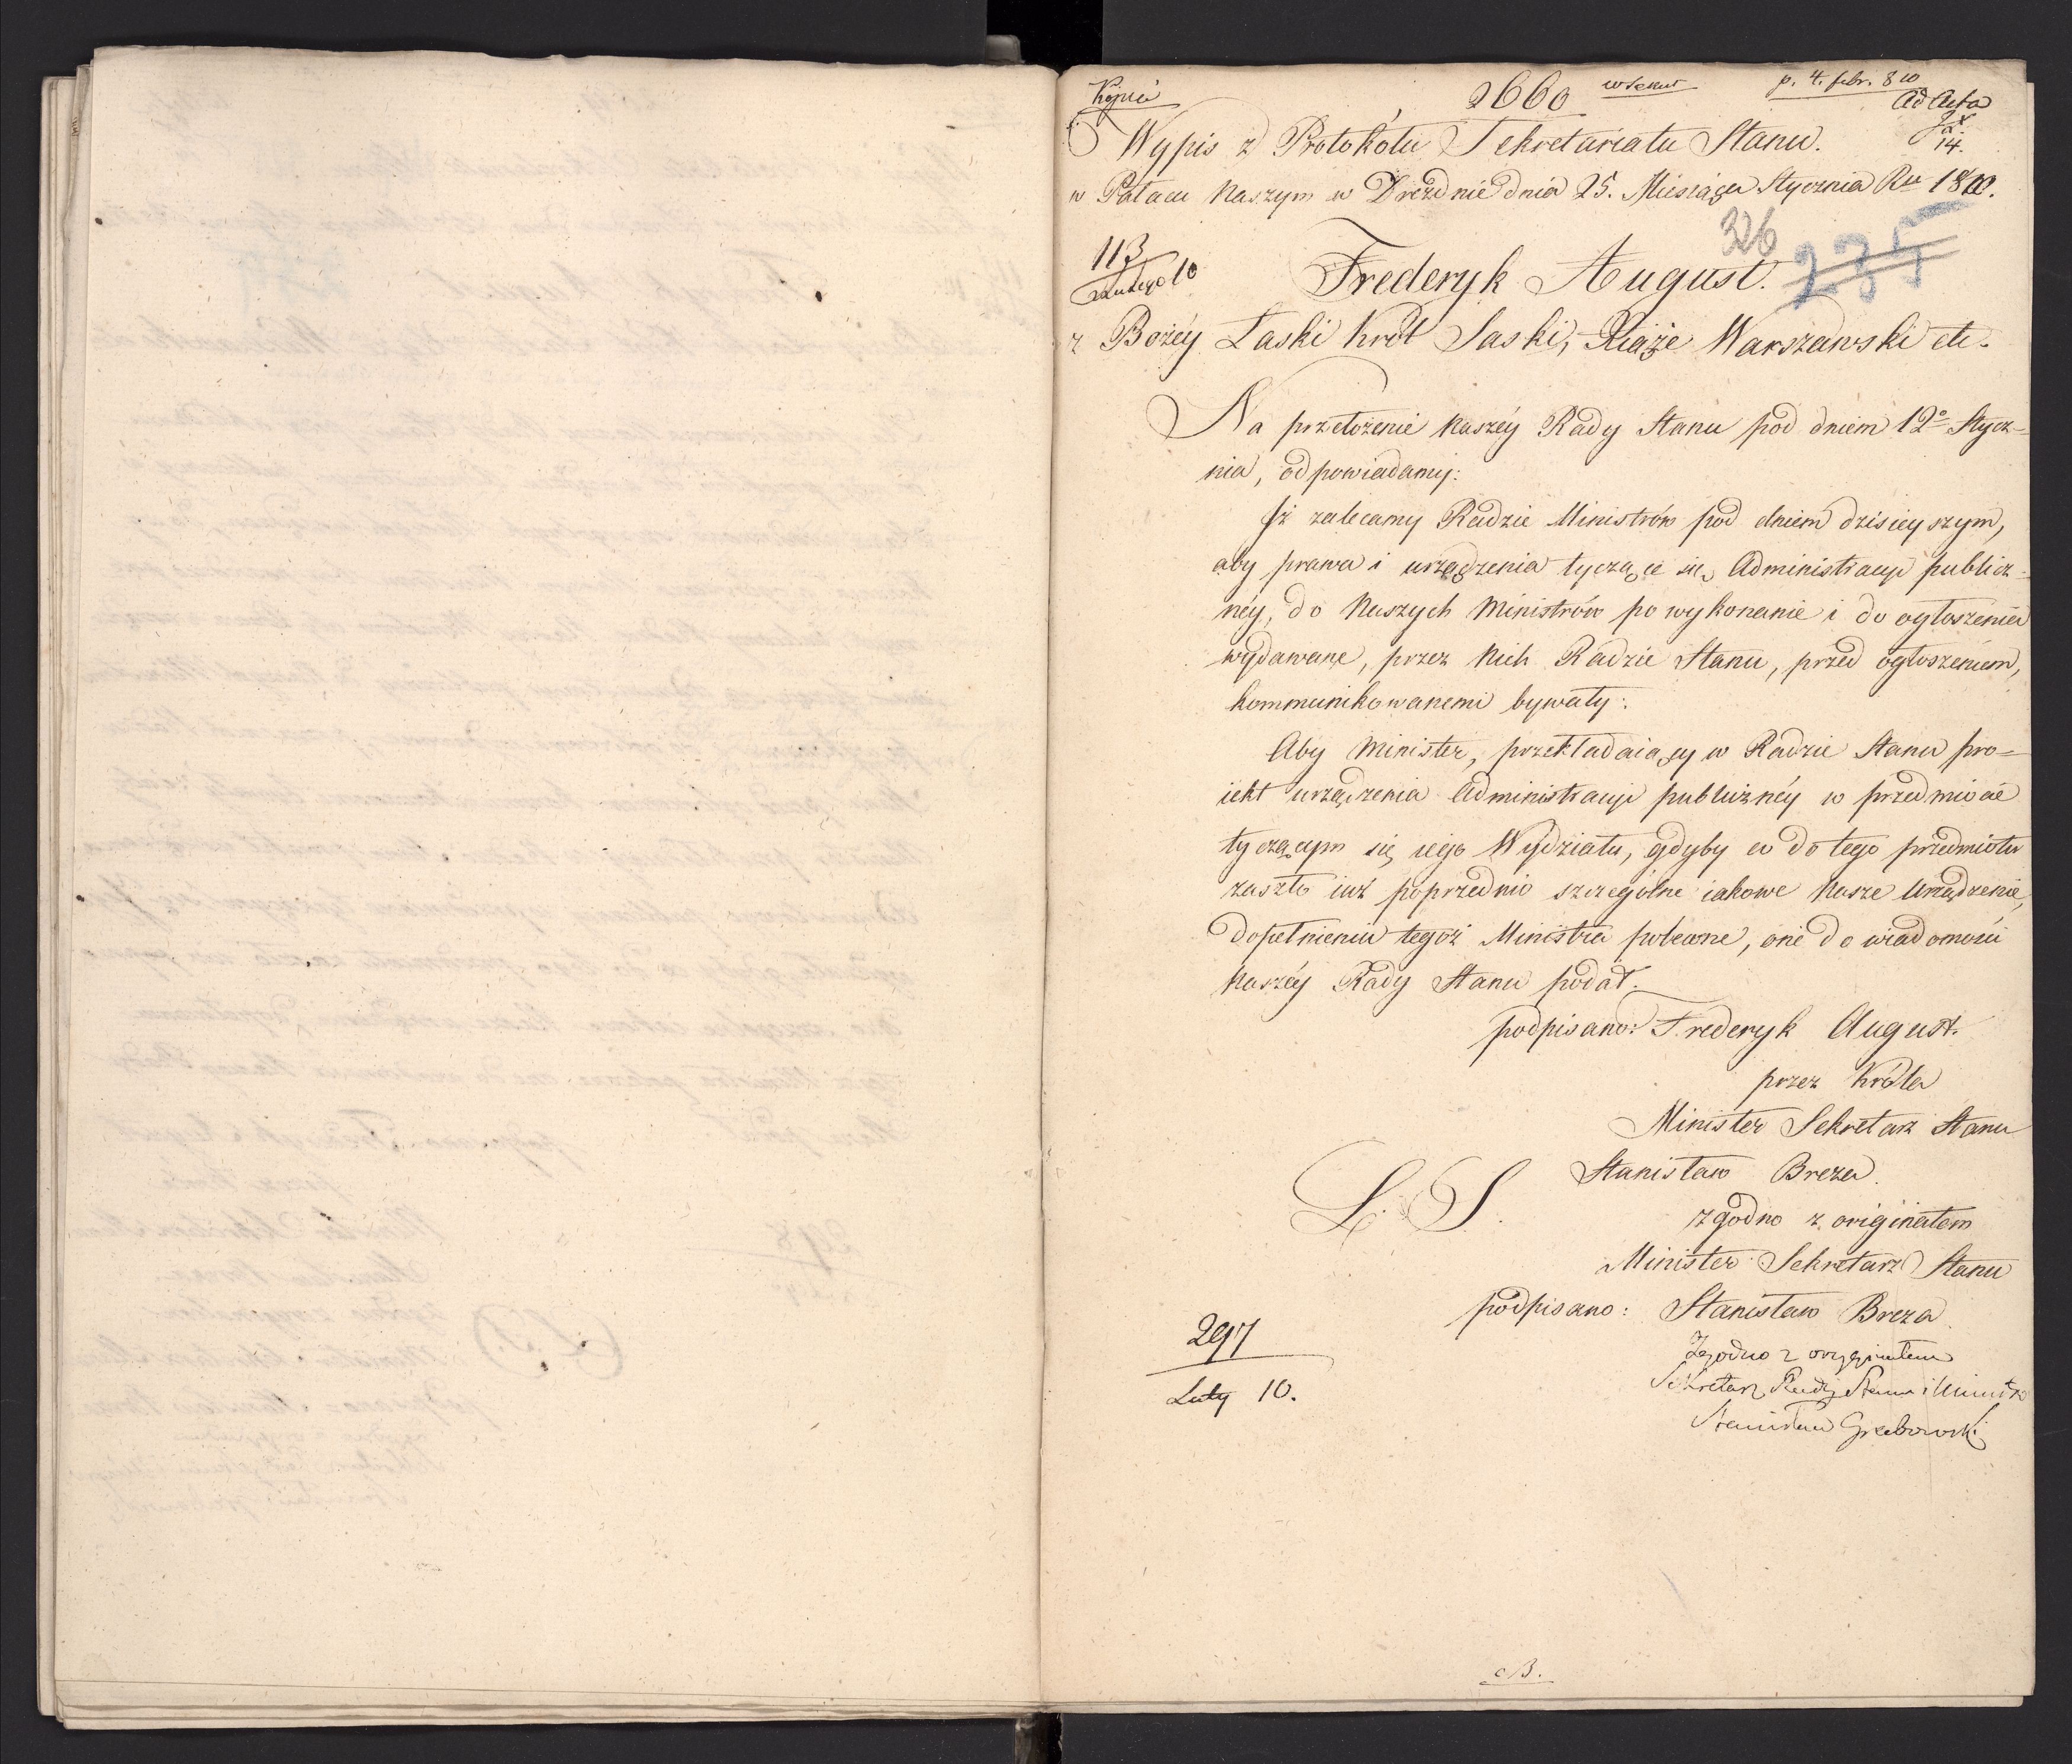 Kopia
2660
p. 4. febr. 810
ad Acta
14.
Wypis z Protokółu Sekretariatu Stanu.
w Pałacu Naszym w Dreźdnie dnia 25. Miesiąca Stycznia Ru 1810.
326
235
113
Lutego 10
Frederyk August.
z Bożéy Łaski Król Saski, Xiąże Warszawski etc.
Na przełożenie Naszéy Rady Stanu pod dniem 12o Stycz-
nia, odpowiadamy:
Iż zalecamy Radzie Ministrów pod dniem dzisieyszym,
aby prawa i urządzenia tyczące się Administracyi publicz-
néy, do Naszych Ministrów po wykonanie i do ogłoszenia
wydawane, przez Nich Radzie Stanu, przed ogłoszeniem,
kommunikowanemi bywały.
Aby Minister, przekładaiący w Radzie Stanu pro-
iekt urządzenia Administracyi publicznéy w przedmiocie
tyczącym się iego Wydziału, gdyby co do tego przedmiotu
zaszło iuż poprzednio szczególne iakowe Nasze Urządzenie,
dopełnieniu tegoż Ministra polecone, one do wiadomości
Naszéy Rady Stanu podał.
podpisano: Frederyk August.
przez Króla
Minister Sekretarz Stanu
L. S.
Stanisław Breza.
zgodno z originałem
Minister Sekretarz Stanu
podpisano: Stanisław Breza
297
Luty 10.
Zgodno z oryginałem
Sekretarz Rady Stanu i Ministr
Stanisław Grabowski